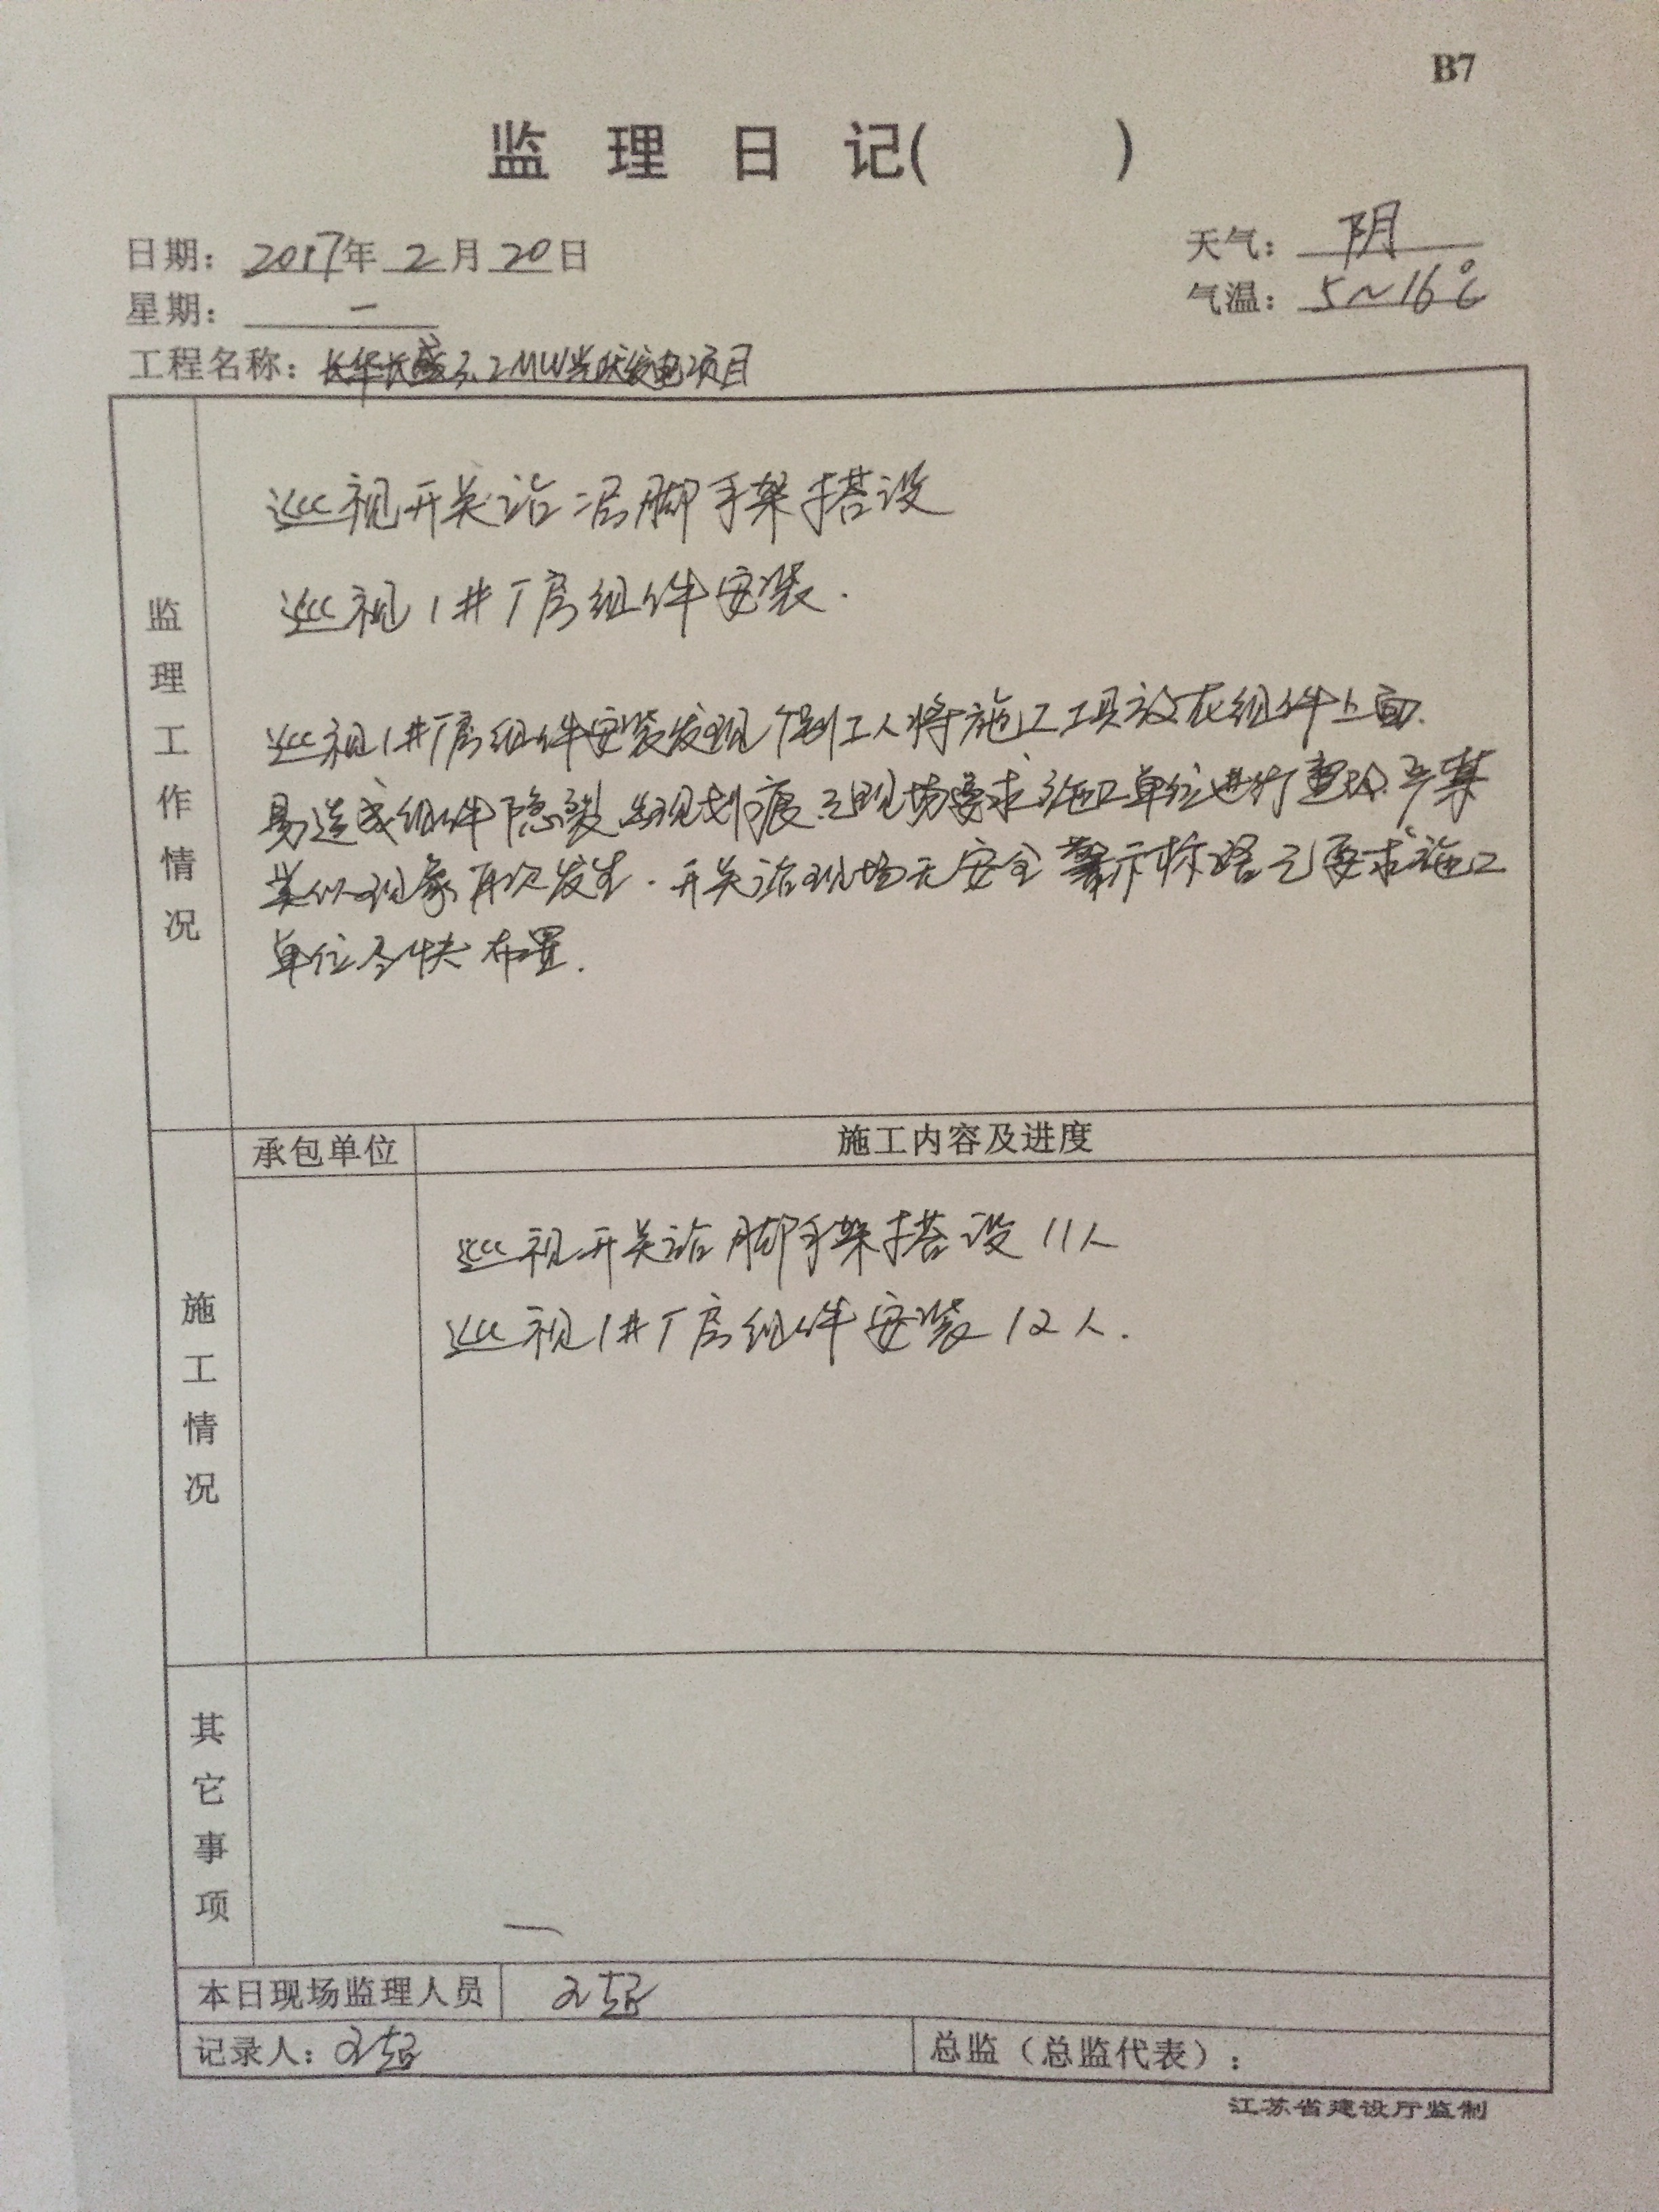 B7
监 理 日 记( )
日期：2017年 2 月 20 日
天气：阴
星期：一
气温：5~16℃
工程名称：长华长盛3.2MW光伏发电项目
监理工作情况
巡视开关站 脚手架搭设
巡视1#厂房组件安装.
巡视1#厂房组件安装发现个别工人将施工工具放在组件上面.
易造成组件隐裂.出现划痕.已现场要求施工单位进行整改.严禁
类似现象再次发生.开关站现场无安全警示标 已要求施工
单位尽快布置.
承包单位
施工内容及进度
施工情况
巡视开关站脚手架搭设11人
巡视1#厂房组件安装12人.
其它事项
一
本日现场监理人员
记录人：
总监（总监代表）：
江苏省建设厅监制